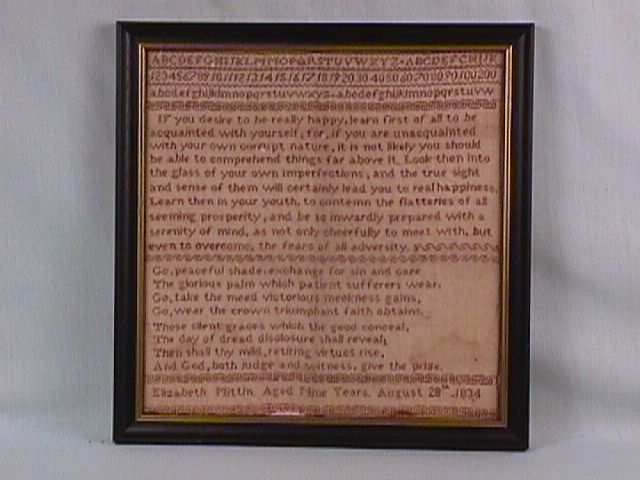 ABCDEFGHIJKLMNOPQRSTUVWXYZ-ABCDEFGHIJK
1 2 3 4 5 6 7 8 9 10 11 12 13 14 15 16 17 18 19 20 30 40 50 60 70 80 90 100 200
abcdefghijklmnopqrstuvwxyz-abcdefghijklmnopqrstuvw
IF you desire to be really happy, learn first of all to be
acquainted with yourself; for, if you are unacquainted
with your own corrupt nature, it is not likely you should
be able to comprehend things far above it. Look then into
the glass of your own imperfections; and the true sight
and sense of them will certainly lead you to real happiness.
Learn then in your youth, to contemn the flatteries of all
seeming prosperity; and be so inwardly prepared with a
serenity of mind, as not only cheerfully to meet with, but
even to overcome, the fears of all adversity.
Go, peaceful shade, exchange for sin and care
The glorious palm which patient sufferers wear;
Go, take the meed victorious meekness gains,
Go, wear the crown triumphant faith obtains.
Those silent graces which the good conceal,
The day of dread disclosure shall reveal;
Then shall thy mild, retiring virtues rise,
And God, both judge and witness, give the prize.
Elizabeth Mittin Aged Nine Years, August 28th 1834